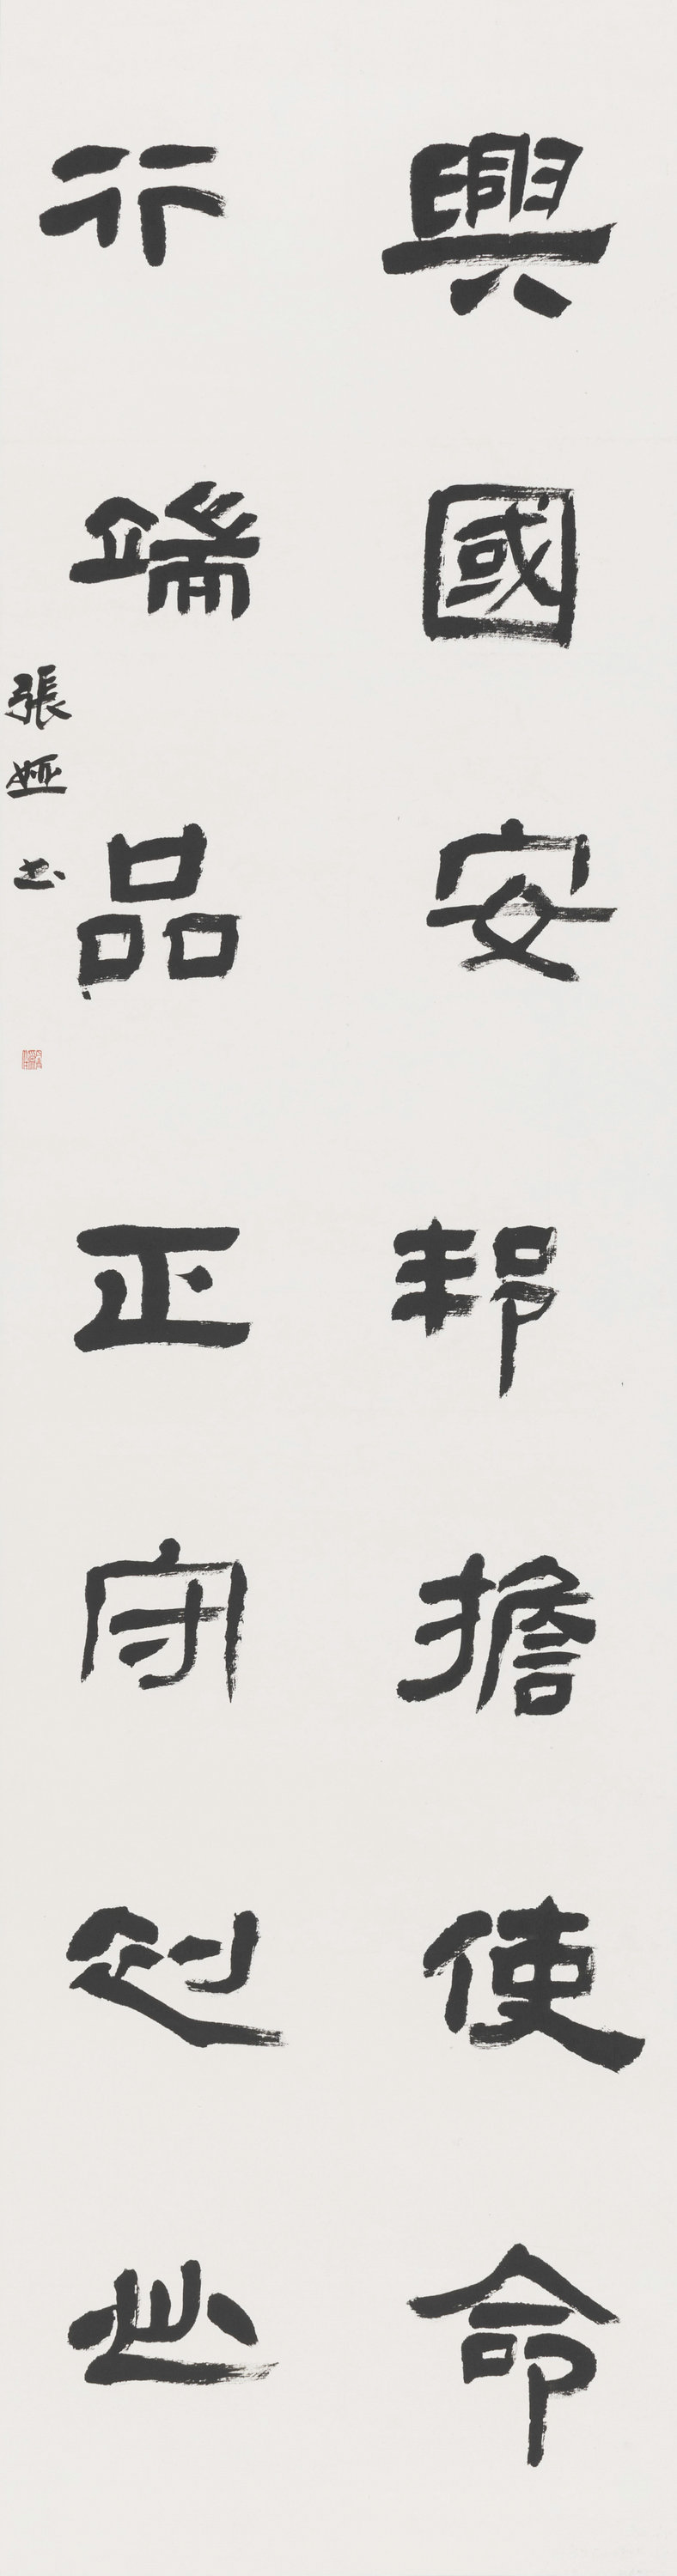 興國安邦擔使命
行端品正守初心
張婭书